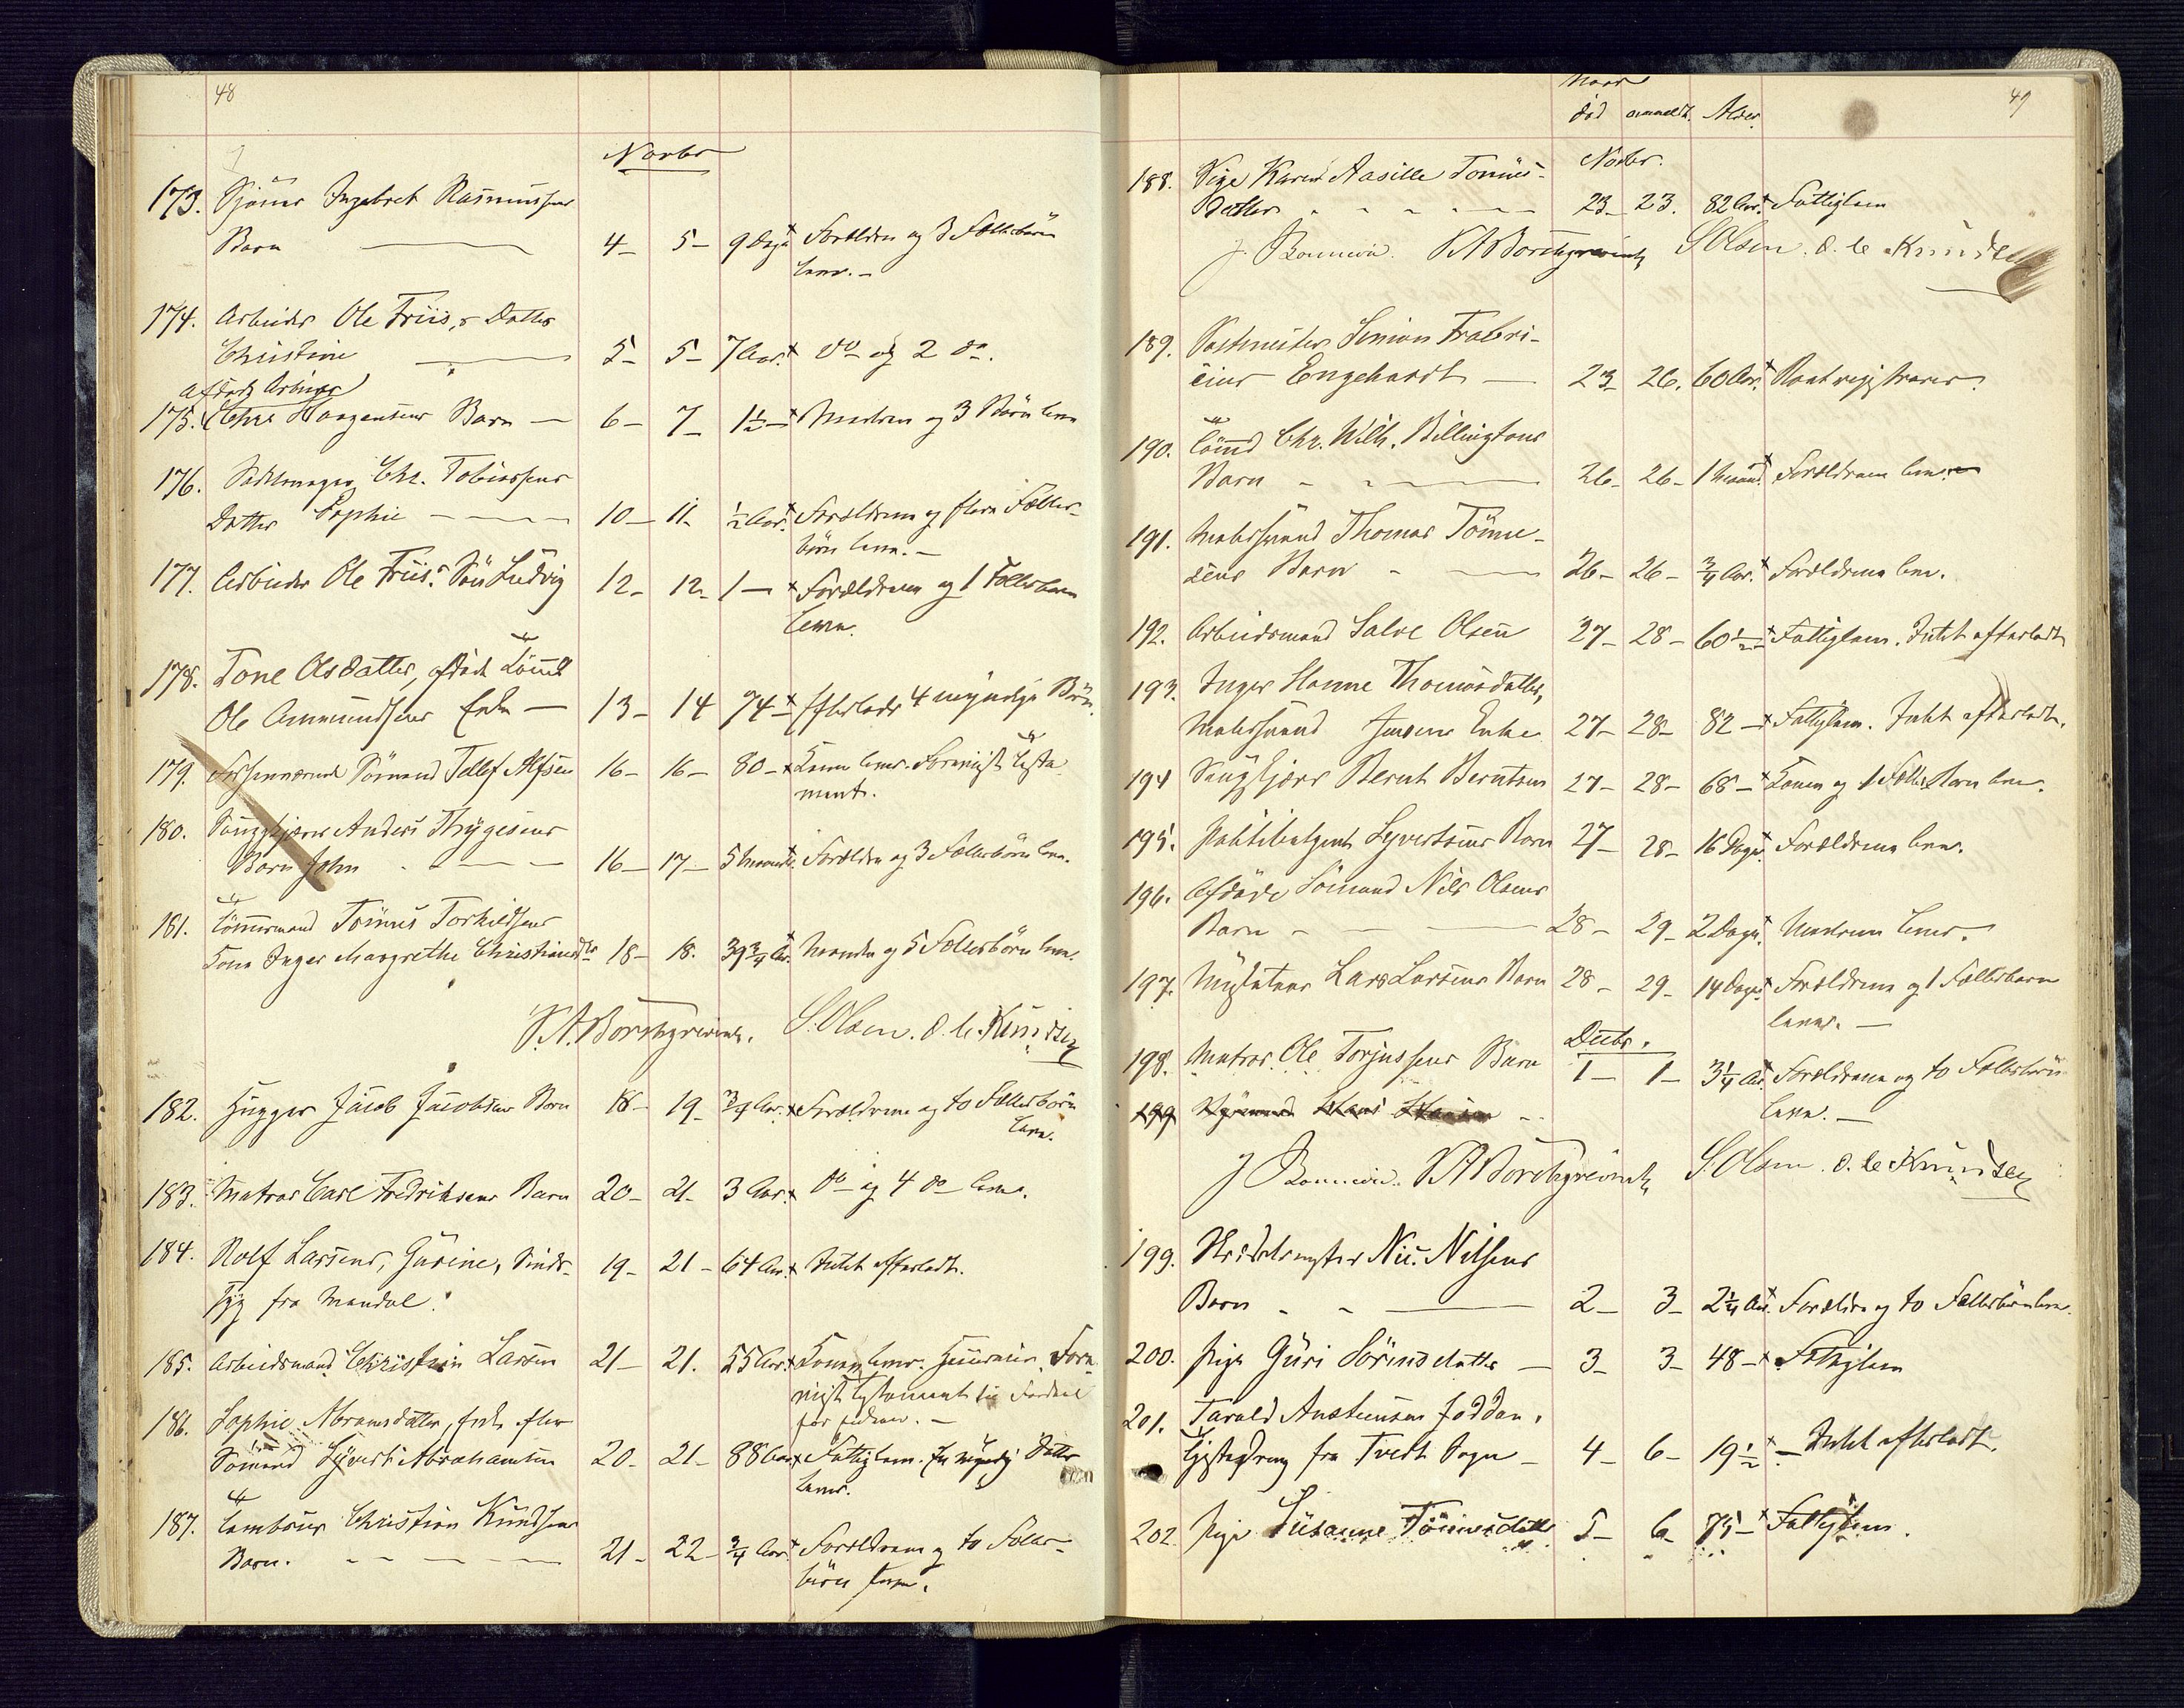 48
Novbr
173. Sjömd Ingebret Rasmussens
Barn 4– 5– 9 Dage Forældre og 3 Fællesbörn
leve.–
174. Arbeider Ole Friis,s Datter
Christine 5– 5– 7 Aar. Do og 2 do.
Afdöde Arbeider
175. Chrs Haagensens Barn – 6– 7– 1½ – Moderen og 3 Börn leve
176. Chr. Tobiassens
Datter Sophie – 10– 11– ½ Aar. Forældrene og flere Fælles-
börn leve.–
177. Arbeider Ole Friis.s Sön Ludvig 12– 12– 1– Forældrene og 1 Fællesbarn
leve.
178. Tone Olsdatter, afdöde Tömd
Ole Ammundsens Enke – 13– 14 74– Efterlader 4 myndige Börn.
179. Forhenværende Sömand Tellef Alfsen 16– 16– 80– Konen lever. Foreviist Testa-
ment.
180. Saugskjærer Anders Thygesens
Barn John 16– 17– 5 Maaneder Forældre og 3 Fællesbörn leve.
181. Tömmermand Tönnes Torkildsens
Kone Inger Margrethe Christiansdtr 18– 18. 39¾ Aar. Manden og 5 Fællesbörn leve.
S.A. Borchgrevink. S. Olsen. O. le. Knudsen
182. Hugger Jacob Jacobsens Barn 18– 19– ¾ Aar. Forældrene og to Fællesbörn
leve.
183. Matros Carl Fredriksens Barn 20– 21– 3 Aar. Do og 4 do leve.
184. Rolf Larsens, Gurine, Sinds-
syg fra Mandal. 19– 21– 64 Aar. Intet efterladt.
185. Arbeidsmand Christian Larsen 21– 21. 55 Aar. Konen lever. Fore-
viist Testament til Fordeel
for
186. Sophie Abramsdatter, Enke efter
Sömand Syvert Abrahamsen 20– 21– 88 Aar Fattiglem. En myndig Datter
lever.
187. Tambour Christian Knudsens
Barn. 21– 22– ¾ Aar. Forældrene og to Fælles-
börn leve.
49
Naar
död anmeldt. Alder.
Novbr.
188. Pige Karen Aasille Tönnes-
Datter 23– 23. 82 Aar. Fattiglem
S A Borchgrevink S Olsen. O. le Knudsen
189. Postmester Simon Frabri-
cius Engehardt – 23– 26. 60 Aar.
190. Tömd Chr. Wilh. Billingtons
Barn 26– 26– 1 Maaned. Forældrene leve.
191. Matrosmand Thomas Tönne-
sens Barn 26– 26– ¾ Aar. Forældrene leve.
192. Arbeidsmand Salve Olsen 27– 28– 60½ – Fattiglem. Intet efterladt
193. Inger Hanne Thomasdatter,
Enke 27– 28– 82– Fattiglem. Intet efterladt.
194 Saugskjærer Bernt Berntsen 27– 28– 68– Konen og 1 Fælles Barn leve.
195. Politibetjent Syvertsens Barn 27– 28– 16 Dage. Forældrene leve.
196. Afdöde Sömand Nils Olsens
Barn 28– 29– 2 Dage. Moderen lever.
197. Lars Larsens Barn 28– 29– 14 Dage. Forældrene og 1 Fællesbarn
lever.–
Decbr.
198. Matros Ole Torjussens Barn 1– 1– 3¼ Aar. Forældrene og to Fællesbörn
leve.–
199
S A Borchgrevink S. Olsen. O. le Knudsen
199. Nic. Nilsens
Barn 2– 3– 2¼ Aar. Forældre og to Fællesbörn leve.
200. Pige Guri Sörensdatter – 3– 3– 48– Fattiglem
201. Tarald Austensen Joddan,
Tjenestedreng fra Tvedt Sogn – 4– 6– 19½ – Intet efterladt.
202. Pige Susanne Tönnesdatter 5– 6– 75– Fattiglem.